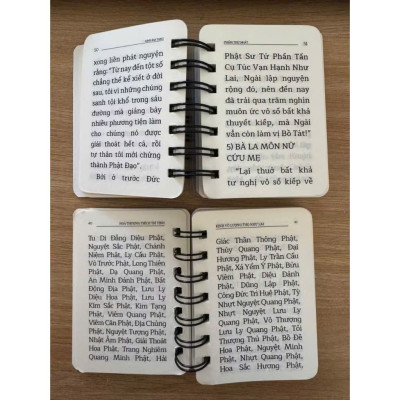 xong liền phát nguyện
rằng: "Từ nay đến tột số
chẳng thể kể xiết ở đời
sau, tôi vì những chúng
sanh tội khổ trong sáu
đường mà giảng bày
nhiều phương tiện làm
cho chúng nó được
giải thoát hết cả, rồi
tự thân tôi mới chứng
thành Phật Đạo".
Bởi ở trước Đức
Phật Sư Tử Phấn Tấn
Cụ Túc Vạn Hạnh Như
Lai, Ngài lập nguyện
rộng đó, nên đến nay
đã trải qua trăm nghìn
muôn ức vô số bất khả
thuyết kiếp, mà Ngài
vẫn còn làm vị Bồ Tát!"
5) BÀ LA MÔN NỮ
CỨU MẸ
"Lại thuở bất khả
tư nghị vô số kiếp về
Tu Di Đẳng Diệu Phật,
Nguyệt Sắc Phật, Chánh
Niệm Phật, Ly Cấu Phật,
Vô Trước Phật, Long Thiên
Phật, Dạ Quang Phật,
An Minh Đảnh Phật, Bất
Động Địa Phật, Lưu Ly
Diệu Hoa Phật, Lưu Ly
Kim Sắc Phật, Kim Tạng
Phật, Viêm Quang Phật,
Viêm Căn Phật, Địa Chủng
Phật, Nguyệt Tượng Phật,
Nhật Âm Phật, Giải Thoát
Hoa Phật, Trang Nghiêm
Quang Minh Phật, Hải
Giác Thần Thông Phật,
Thủy Quang Phật, Đại
Hương Phật, Ly Trần Cấu
Phật, Xả Yếm Ý Phật, Bửu
Viêm Phật, Diệu Đảnh
Phật, Dũng Lập Phật,
Công Đức Trì Huệ Phật, Tế
Nhựt Nguyệt Quang Phật,
Nhựt Nguyệt Lưu Ly
Quang Phật, Vô Thượng
Lưu Ly Quang Phật, Tối
Thượng Thủ Phật, Bồ Đề
Hoa Phật, Nguyệt Minh
Phật, Nhựt Quang Phật,
Hoa Sắc Hương Phật,